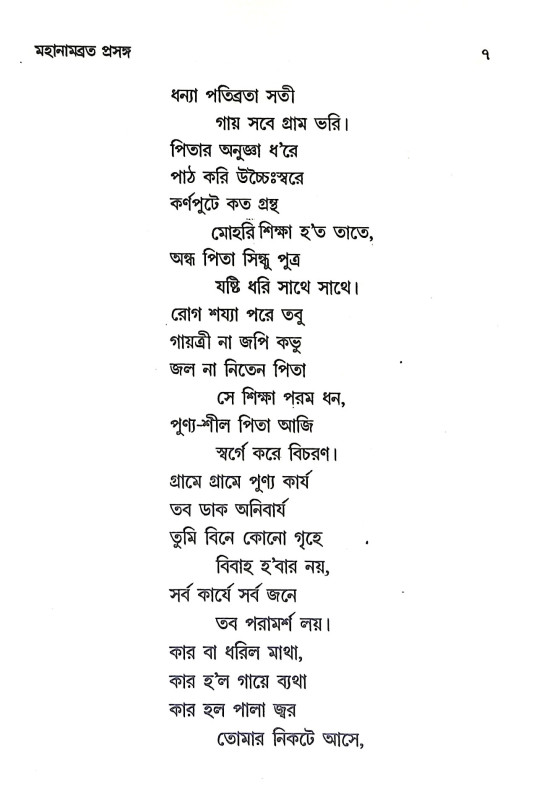 মহানামব্রত প্রসঙ্গ ৭
ধন্যা পতিব্রতা সতী
গায় সবে গ্রাম ভরি।
পিতার অনুজ্ঞা ধ'রে
পাঠ করি উচ্চৈঃস্বরে
কর্ণপুটে কত গ্রন্থ
মোহরি শিক্ষা হ'ত তাতে,
অন্ধ পিতা সিন্ধু পুত্র
যষ্টি ধরি সাথে সাথে।
রোগ শয্যা পরে তবু
গায়ত্রী না জপি কভু
জল না নিতেন পিতা
সে শিক্ষা পরম ধন,
পুণ্য-শীল পিতা আজি
স্বর্গে করে বিচরণ।
গ্রামে গ্রামে পুণ্য কার্য
তব ডাক অনিবার্য
তুমি বিনে কোনো গৃহে
বিবাহ হ'বার নয়,
সর্ব কার্যে সর্ব জনে
তব পরামর্শ লয়।
কার বা ধরিল মাথা,
কার হ'ল গায়ে ব্যথা
কার হল পালা জ্বর
তোমার নিকটে আসে,